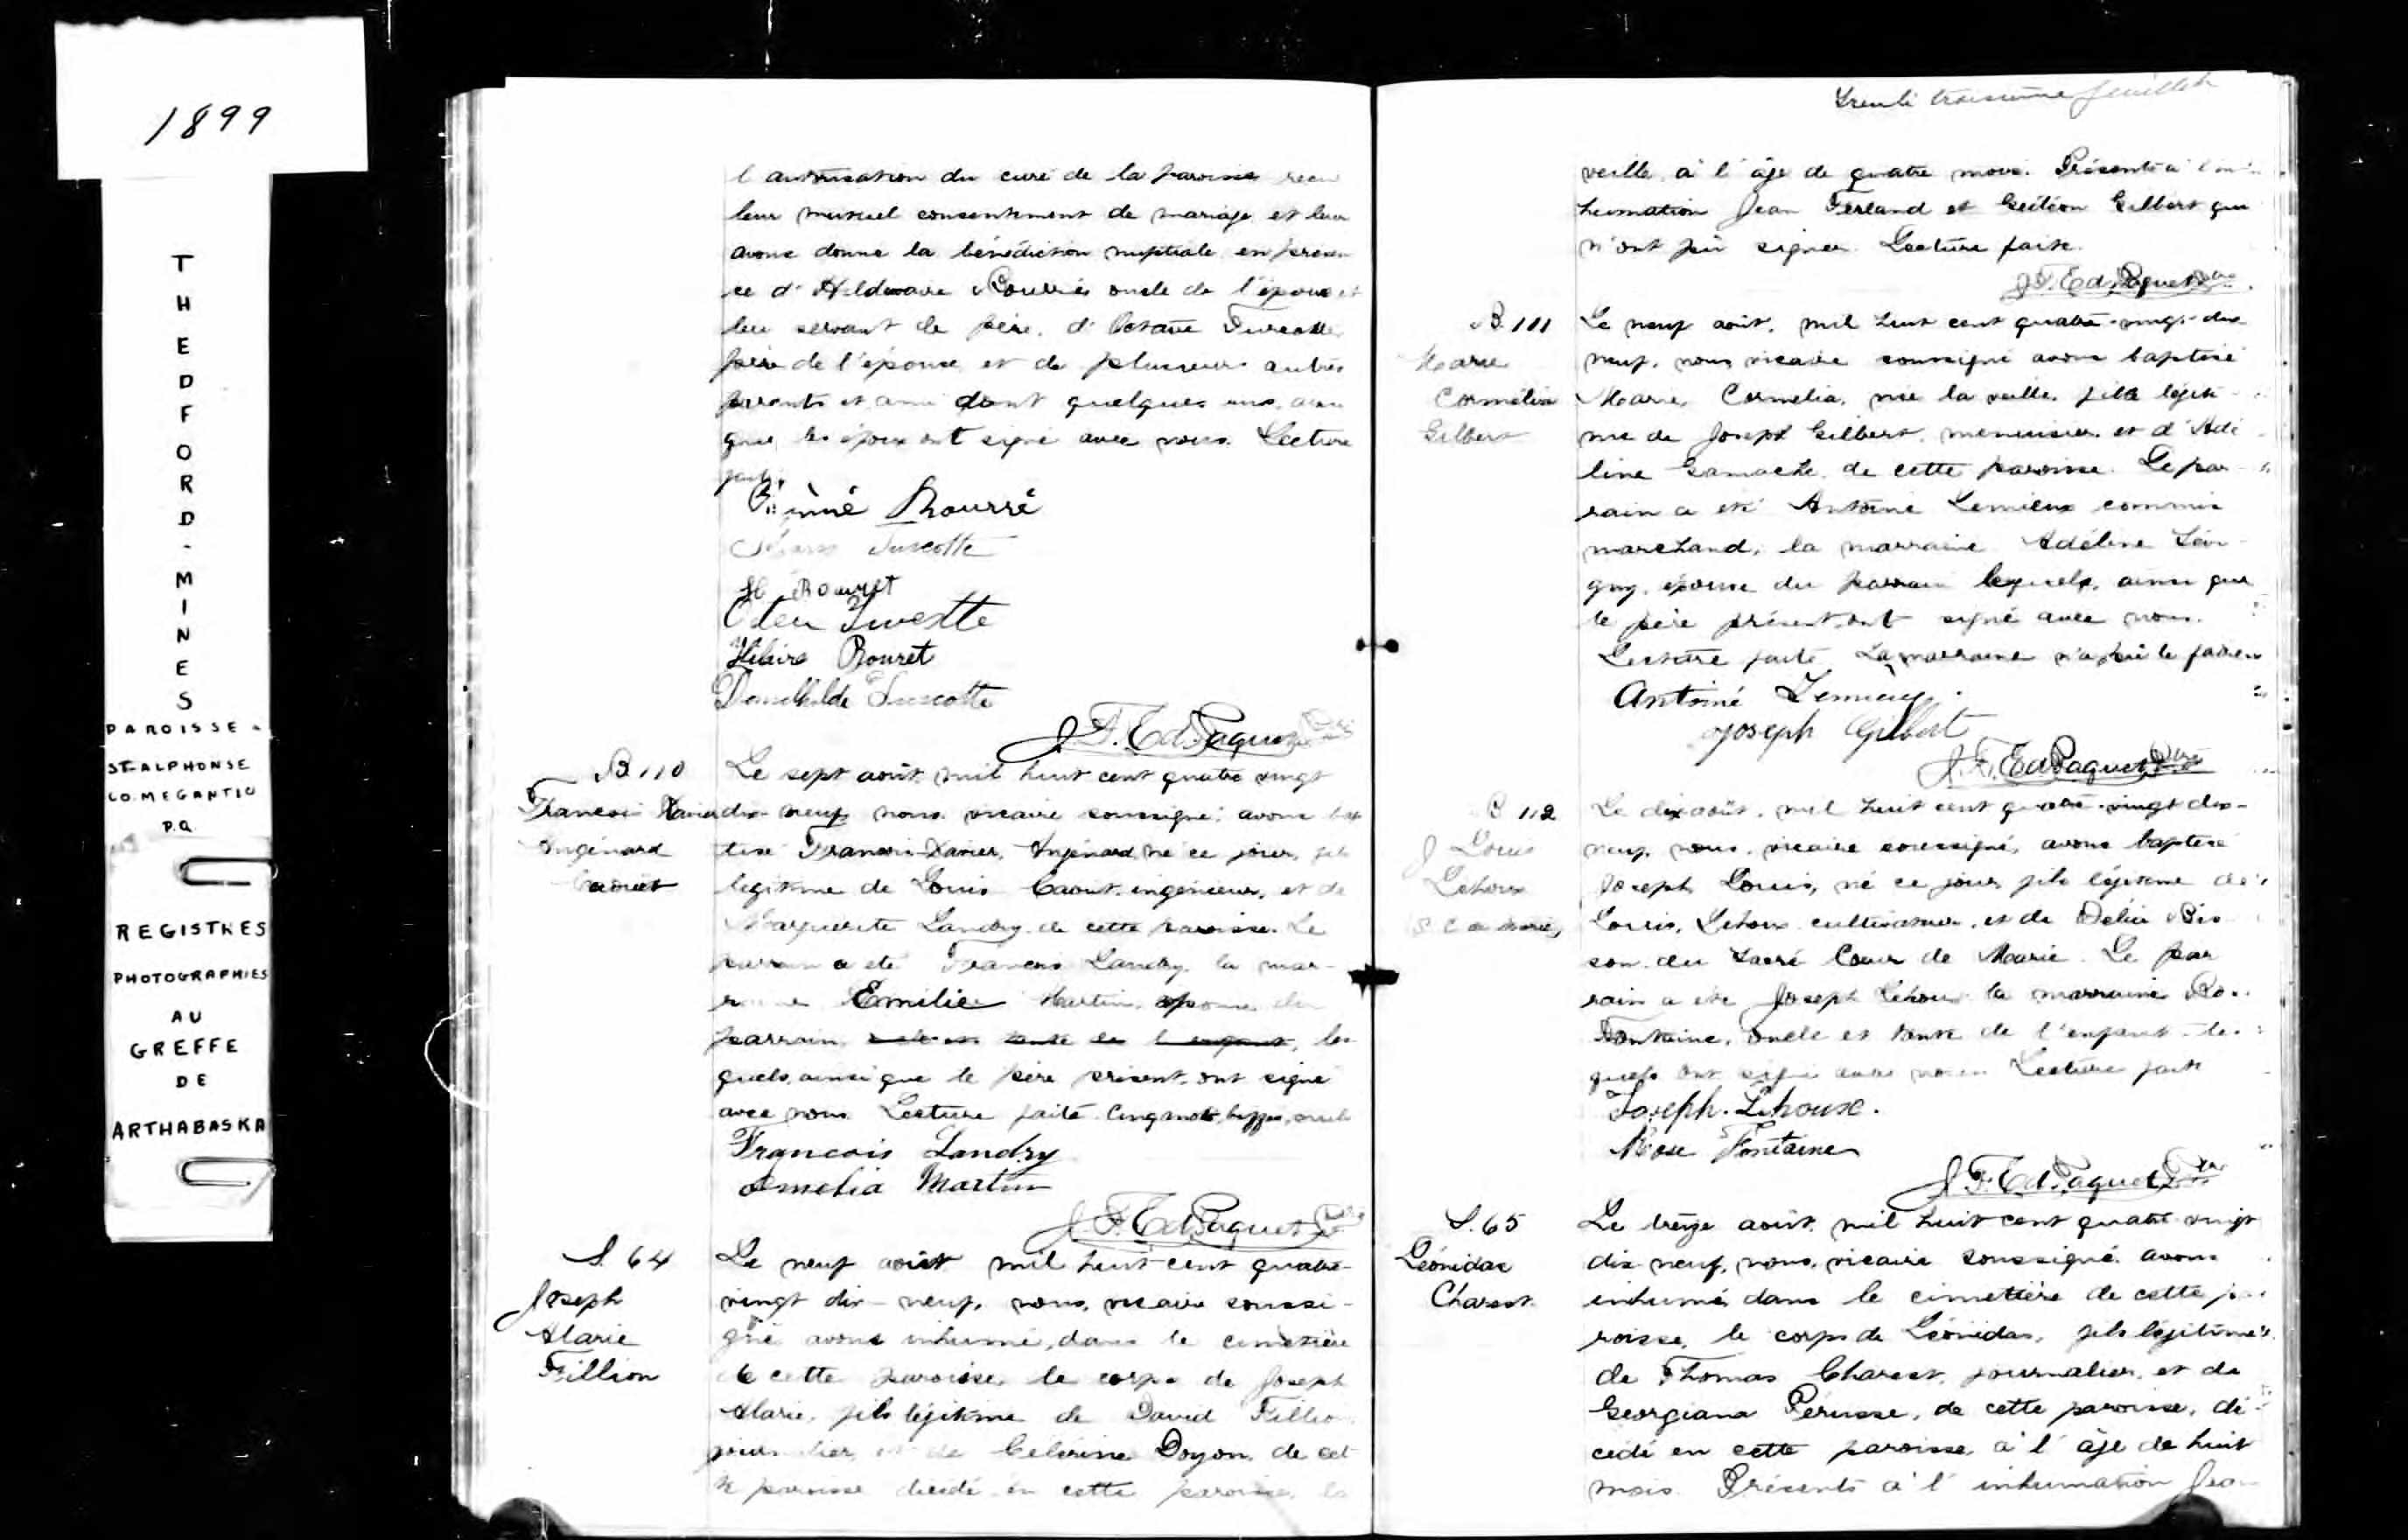 1899
THEDFORD-MINES
PAROISSE
ST-ALPHONSE
CO. MEGANTIC
P.Q.
REGISTRES
PHOTOGRAPHIES
AU
GREFFE
DE
ARTHABASKA
l'autorisation du curé de la paroisse recu
leur mutuel consentement de mariage et leur
avons donné la bénédiction nuptiale en presen
ce d' oncle de l'époux et
lui servant de père, d'Octave Turcotte
père de l'épouse et de plusieurs autres
parents et ami dont quelques uns, ainsi
que les époux ont signé avec nous. Lecture
faite.
Turcotte
H. Rouret
Turcotte
Hilaire Rouret
Turcotte
J. F. Ed. Paquet Ptre
B. 110
Francois Xavier
Ingénard
Caouet
Le sept août mil huit cent quatre vingt
dix-neuf nous vicaire soussigné avons bap
tisé Francois-Xavier, Ingénard, né ce jour, fils
legitime de Louis Caouet, ingénieur, et de
Marguerite Landry de cette paroisse. Le
parrain a été Francois Landry, la mar-
raine Emilie Martin, épouse du
parrain, les
quels, ainsi que le père présent, ont signé
avec nous. Lecture faite. Cinq mots biffés, nuls
Francois Landry
Amelia Martin
J. F. Ed. Paquet Ptre
S. 64
Joseph
Alarie
Fillion
Le neuf août mil huit cent quatre-
vingt dix-neuf, nous, vicaire soussi-
gné avons inhumé, dans le cimetière
de cette paroisse, le corps de Joseph
Alarie, fils légitime de David Fillion
journalier, et de Célérine Doyon, de cet
te paroisse décédé en cette paroisse, la
Trente troisième feuillet
veille, à l'âge de quatre mois. Présents à l'in-
humation Jean Ferland et Gédéon Gilbert qui
n'ont pu signer. Lecture faite.
J. F. Ed. Paquet Ptre
B. 111
Marie
Cornélia
Gilbert
Le neuf août, mil huit cent quatre-vingt-dix
neuf, nous vicaire soussigné avons baptisé
Marie, Cornelia, née la veille, fille légiti-
me de Joseph Gilbert, menuisier et d'Adé
line Gamache, de cette paroisse. Le par-
rain a été Antoine Lemieux commis
marchand, la marraine Adéline
épouse du parrain lesquels, ainsi que
le père présent, ont signé avec nous.
Lecture faite. La marraine n'a pu le faire
Antoine Lemieux
Joseph Gilbert
J. F. Ed Paquet Ptre
B 112
J Louis
Lehoux
S C de Marie
Le dix août, mil huit cent quatre-vingt dix-
neuf, nous, vicaire soussigné, avons baptisé
Joseph Louis, né ce jour fils légitime de
Louis, Lehoux cultivateur, et de Délia Bis
son, du Sacré Coeur de Marie. Le par
rain a été Joseph Lehoux la marraine Ro
Fontaine, oncle et tante de l'enfant les
quels ont signé avec nous Lecture faite
Joseph. Lehoux.
Rose Fontaine
J. F. Ed. Paquet Ptre
S. 65
Léonidas
Charest
Le treize août, mil huit cent quatre-vingt
dix-neuf, nous, vicaire soussigné avons
inhumé, dans le cimetière de cette pa
roisse, le corps de Léonidas, fils légitime
de Thomas Charest, journalier, et de
Georgiana Pérusse, de cette paroisse, dé-
cédé en cette paroisse, à l'âge de huit
mois. Présents à l'inhumation Jean